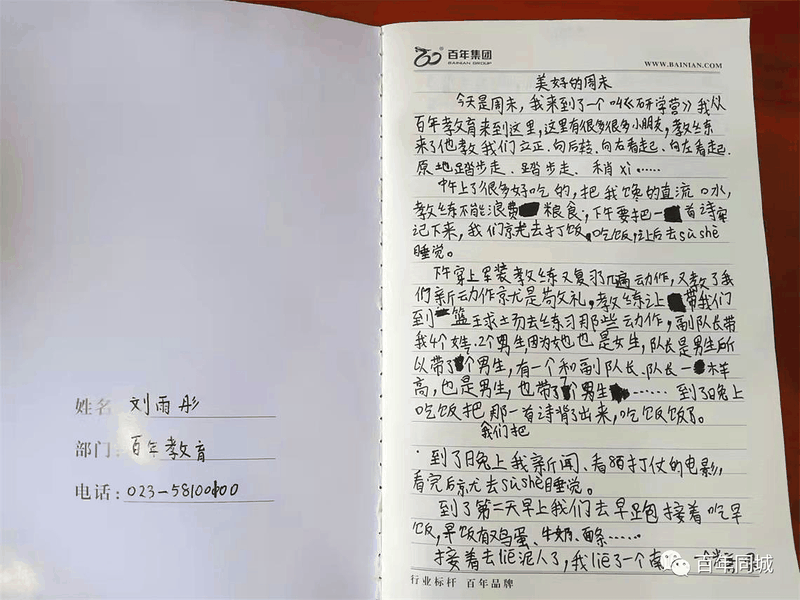 姓名 刘雨彤
部门:百年教育
电话:023-58100100
百年集团
BAINIAN GROUP
WWW.BAINIAN.COM
美好的周末
今天是周末,我来到了一个叫《研学营》我从
百年教育来到这里,这里有很多很多小朋友,教练
来了他教我们立正.向后转.向右看起.向左看起.
原地踏步走.踏步走.稍xi……
中午上了很多好吃的,把我馋的直流口水,
教练不能浪费粮食,下午要把一首诗
记下来,我们就去打饭,吃饭,让后去sùshè
睡觉。
下午穿上军装教练又复习几遍动作,又教了我
们新动作就是苟文礼,教练让带我们
到篮球场去练习那些动作,副队长带
我4个女生.2个男生,因为她也是女生,队长是男生所
以带了个男生,有一个和副队长.队长一样
高,也是男生,也带了个男生……到了晚上
吃饭把那一首诗背了出来,吃饭饭了。
我们把
到了晚上我新闻、看打仗的电影,
看完后就去sùshè睡觉。
到了第二天早上我们去早跑接着吃早
饭,早饭有鸡蛋、牛奶、面条……
接着去liē泥人了,我liē了一个南
行业标杆 百年品牌
百年同城